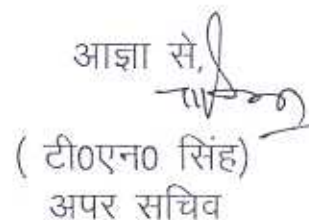 आज्ञा से,
( टी0एन0 सिंह)
अपर सचिव